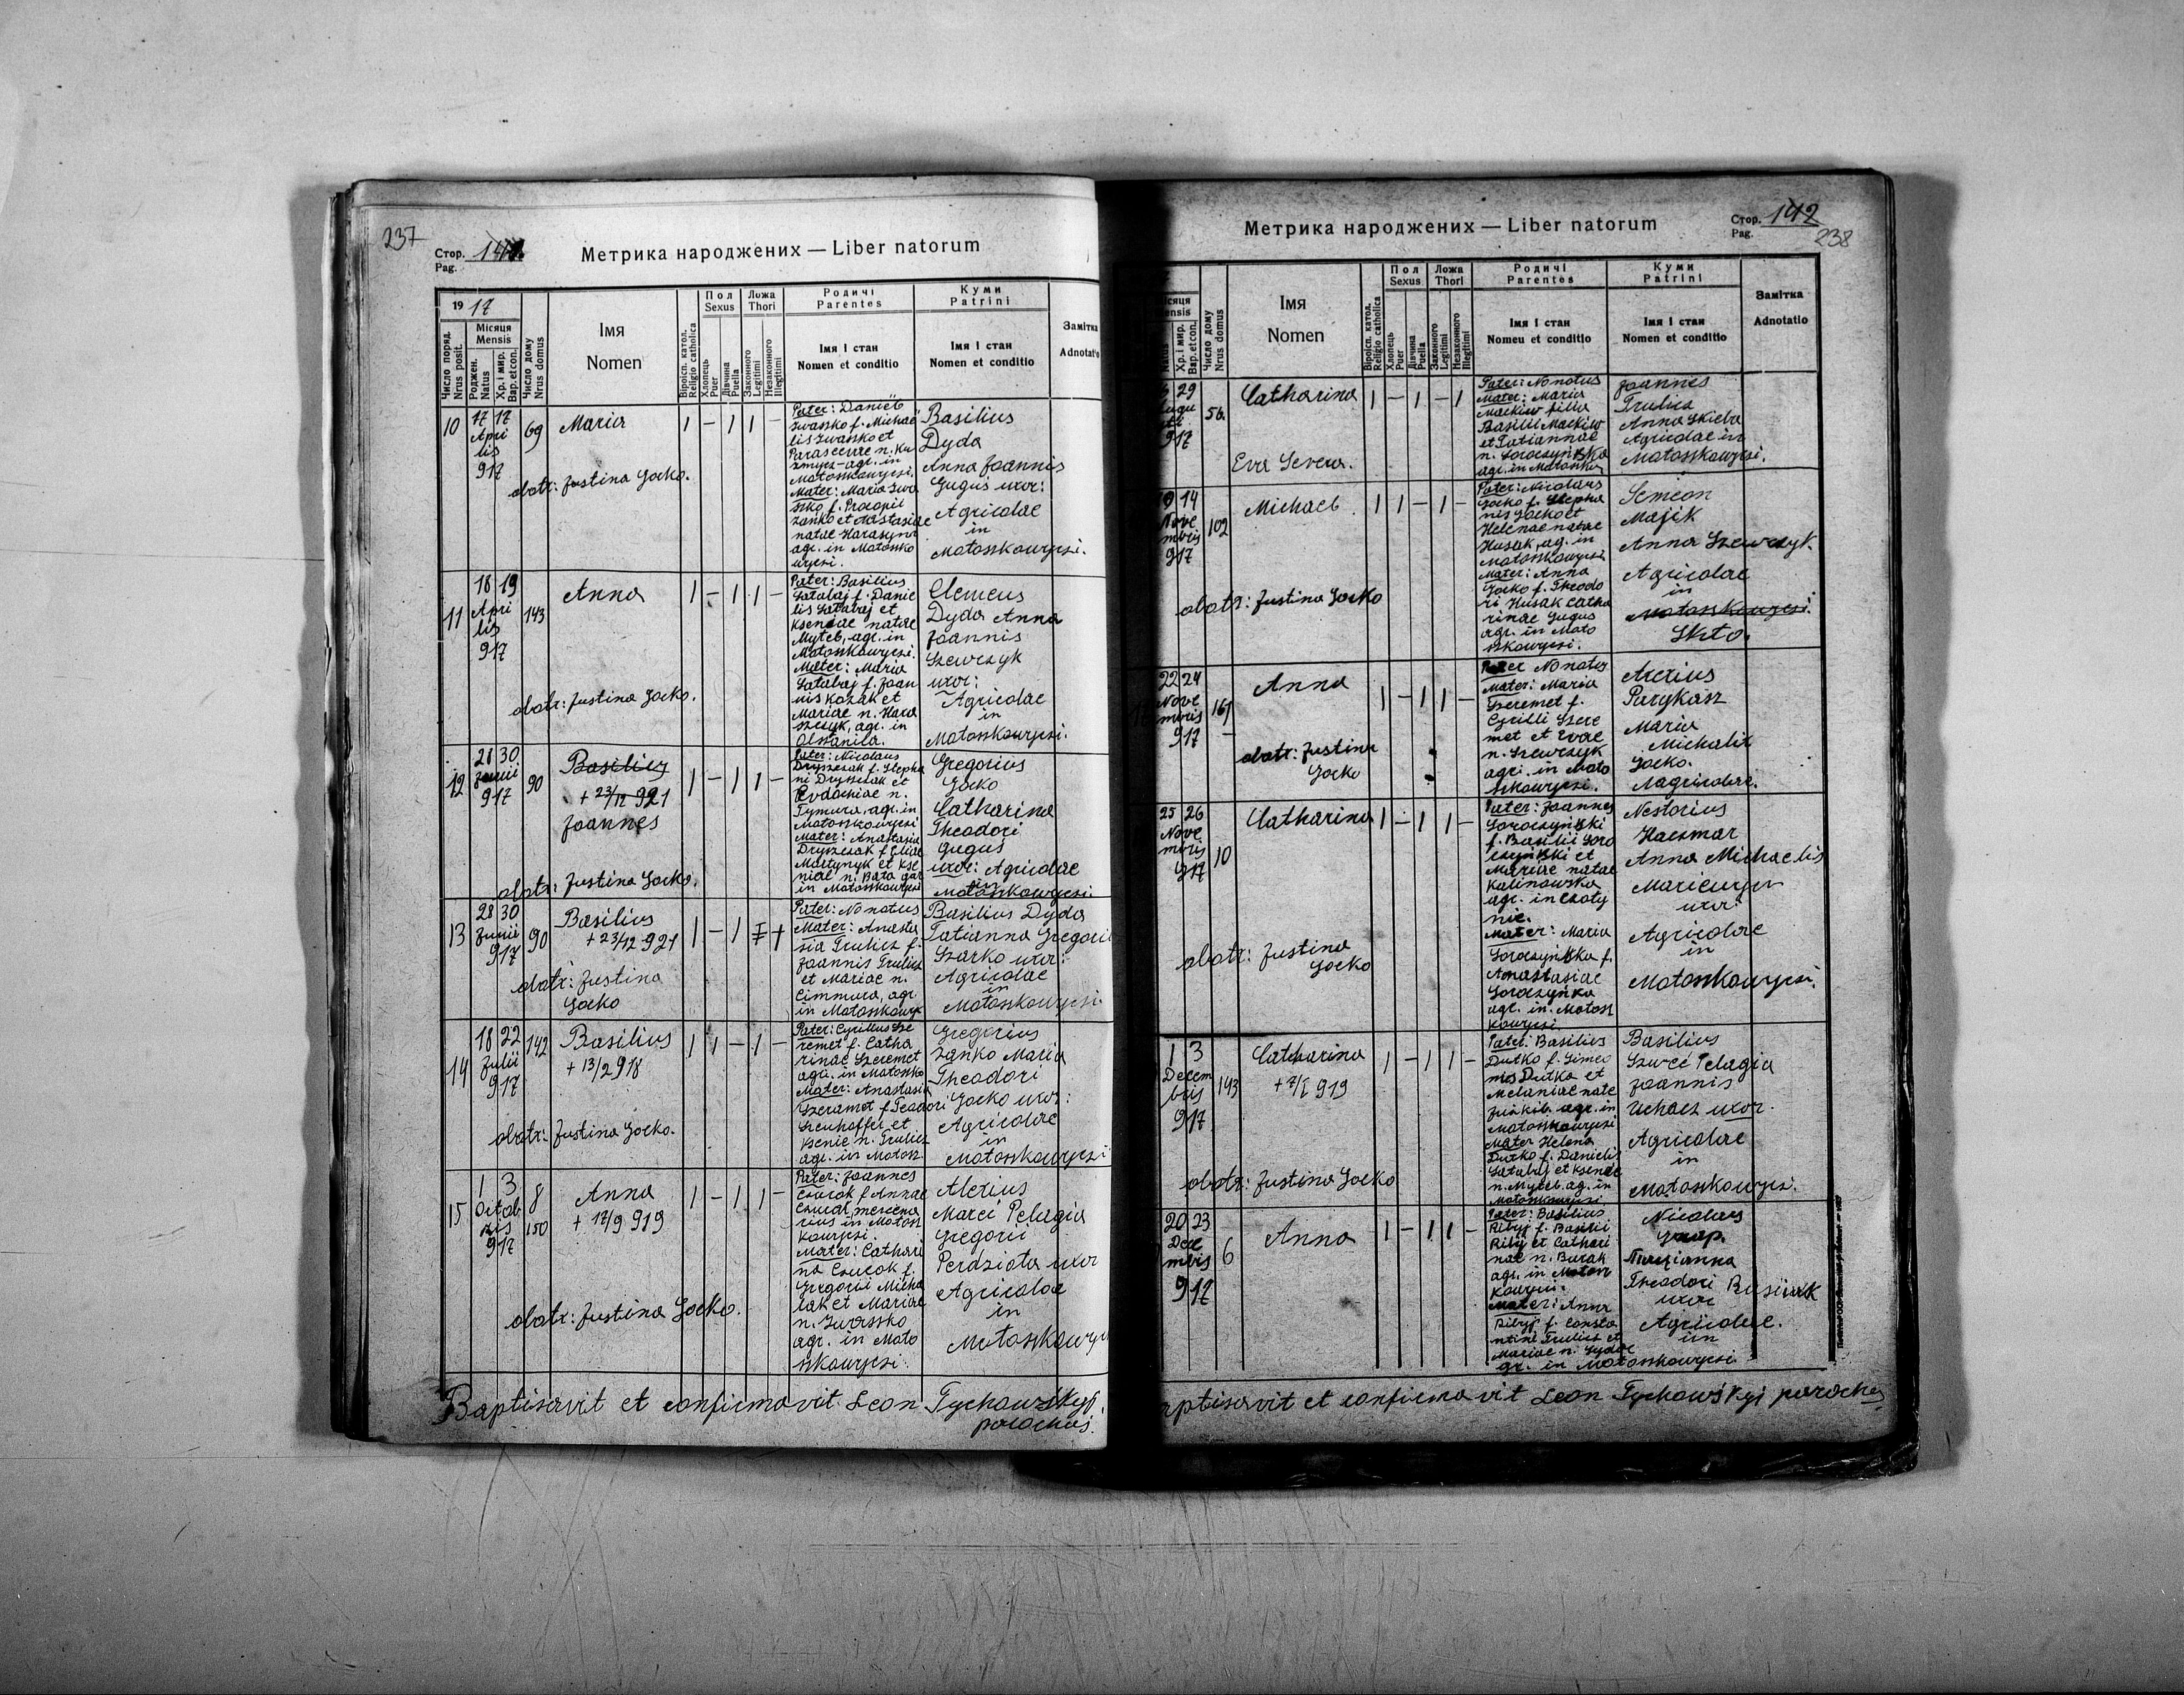 237
Стор. 141
Pag.
Метрика народжених — Liber natorum
19 17
Число поряд.
Nrus posit.
Місяця
Mensis
Роджен.
Natus
Хр. і мир.
Bap. et con.
Число дому
Nrus domus
Імя
Nomen
Віроісп. катол.
Religio catholica
Пол
Sexus
Хлопець
Puer
Дівчина
Puella
Ложа
Thori
Законного
Legitimi
Незаконного
Illegitimi
Родичі
Parentes
Імя і стан
Nomen et conditio
Куми
Patrini
Імя і стан
Nomen et conditio
Замітка
Adnotatio
10
17 17
Apri
lis
917
69
Maria
1 – 1 1 –
obstr: Justina Gocko.
Pater: Daniel
Iwassko f. Michae
lis Iwassko et
Parascevae n. Ku
agr. in
Matosskowyesi.
Mater: Maria Iwa
ssko f. Procopii
Zanko et Anastasiae
natae Harasym
agr. in Matossko
wyesi.
Basilius
Dyda
Anna Joannis
Gugus uxor:
Agricolae
in
Matosskowyesi.
11
18 19
Apri
lis
917
143
Anna
1 – 1 1 –
obstr: Justina Gocko.
Pater: Basilius
f. Danie
lis et
Kseniae natae
Myteb, agr. in
Matosskowyesi.
Mater: Maria
f. Joan
nis Kozak et
Mariae n. Hara
agr. in
Clemens
Dyda Anna
Joannis
Szewczyk
uxor:
Agricolae
in
Matosskowyesi.
12
28 30
Junii
917
90
Basilius
+ 23/12 921
Joannes
1 – 1 1 –
obstr: Justina Gocko.
Pater: Nicolaus
Dryszczak f. Stepha
ni Dryszczak et
Evdochiae n.
Tymura, agr. in
Matosskowyesi
Mater: Anastasia
Dryszczak f. Eliae
Martynyk et Kse
niae n. Bata agr
in Matosskowyesi
Gregorius
Gocko
Catharina
Theodori
Gugus
uxor: Agricolae
in
Matosskowyesi.
13
28 30
Junii
917
90
Basilius
+ 23/12 921
1 – 1
obstr: Justina
Gocko
Pater: No natus
Mater: Anasta
sia Trulicz f.
Joannis Trulicz
et Mariae n.
Cimmura, agr.
in Matosskowy
Basilius Dyda
Tatianna Gregorii
Szarko uxor:
Agricolae
in
Matosskowyesi.
14
18 22
Julii
917
142
Basilius
+ 13/2 918
1 1 – 1 –
obstr: Justina Gocko.
Pater: Cyrillus Sze
remet f. Catha
rinae Szeremet
agr. in Matossko
Mater: Anastasia
Szeramet f. Teodori
et
Ksenie n. Trulicz
agr. in Matoss
Gregorius
Zanko Maria
Theodori
Gocko uxor:
Agricolae
in
Matosskowyesi
15
1 3
Octob
ris
917
8
150
Anna
+ 12/9 919
1 – 1 1 –
obstr: Justina Gocko.
Pater: Joannes
f. Annae
rius in Matoss
kowyesi.
Mater: Cathari
na f.
Gregorii Micha
lak et Mariae
n. Iwassko
agr. in Mato
sskowyesi.
Alexius
Marci Pelagia
Gregorii
Perdziota uxor
Agricolae
in
Matosskowy
Baptisavit et confirmavit Leon Tychowśkyj,
parochus.
Метрика народжених — Liber natorum
Стор. 142
Pag.
238
Місяця
Mensis
Natus
Хр. і мир.
Bap. et con.
Число дому
Nrus domus
Імя
Nomen
Віроісп. катол.
Religio catholica
Пол
Sexus
Хлопець
Puer
Дівчина
Puella
Ложа
Thori
Законного
Legitimi
Незаконного
Illegitimi
Родичі
Parentes
Імя і стан
Nomeu et conditio
Куми
Patrini
Імя і стан
Nomen et conditio
Замітка
Adnotatio
29
917
56
Catharina
1 – 1 – 1
Eva Severa.
Pater: No notus
Mater: Maria
Mackiw filia
Basilii Mackiw
et Tatiannae
n. Soroczynska
agr. in Matossko
Joannes
Trulicz
Anna Skieba
Agricolae in
Matosskowyesi.
14
Nove
mbris
917
109
Michael
1 1 – 1 –
obstr: Justina Gocko
Pater: Nicolaus
Gocko f. Stepha
nis Gocko et
Helenae natae
Husak, ag. in
Matosskowyesi
Mater: Anna
Gocko f. Theodo
ri Husak Catha
rinae Gugus
agr. in Mato
sskowyesi.
Semeon
Majik
Anna Szewczyk
Agricolae
in
Matosskowyesi.
22 24
Nove
mbris
917
161
Anna
1 – 1 1 –
obstr: Justina
Gocko
Pater No natus
Mater: Maria
Szeremet f.
Cyrilli Szere
met et Evae
n. Szewczyk
agr. in Mato
sskowyesi.
Alexius
Parykasz
Maria
Michalis
Gocko.
25 26
Nove
mbris
917
10
Catharina
1 – 1 1 –
obstr: Justina
Gocko
Pater: Joannes
Soroczyński
f. Basilii Soro
czyński et
Mariae natae
Kalinowska
agr. in
Mater: Maria
Soroczyńska f.
Anastasiae
Soroczyńka
agr. in. Matoss
kowyesi
Nestorius
Haczmar
Anna Michaelis
uxor:
Agricolae
in
Matosskowyesi.
1 3
Decem
bris
917
143
Catharina
919
1 – 1 1 –
obstr: Justina Gocko
Pater: Basilius
Dutko f. Simeo
nis Dutko et
Melaniae nate
agr. in
Matosskowyesi
Mater Helena
Dutko f. Danielis
et Kseniae
n. Myteb. ag. in
Matosskowyesi
Basilius
Pelagia
Joannis
uxor.
Agricolae
in
Matosskowyesi.
20 23
Dece
mbris
917
6
Anna
1 – 1 1 –
Pater: Basilius
Ribyj f. Basilii
Ribyj et Cathari
nae n. Burak
agr. in Matoss
kowyesi.
Mater: Anna
Ribyj f. Consta
ntini Trulicz et
Mariae n.
agr. in Matosskowyesi.
Nicolaus
Theodori
uxor
Agricolae.
in
Baptisavit et confirmavit Leon Tychowśkyj parochus